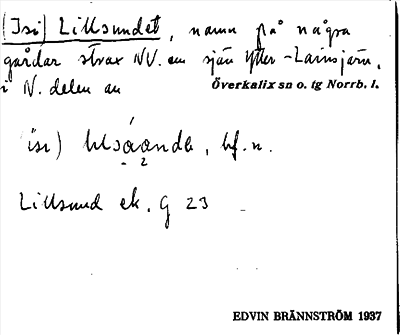 (Isi) Lillsundet, namn på några
gårdar strax NV. om sjön Ytter-Lainsjärv,
i N. delen av Överkalix sn o. tg Norrb. l.
isi) bf. n.
Lillsund ek. G 23
EDVIN BRÄNNSTRÖM 1937